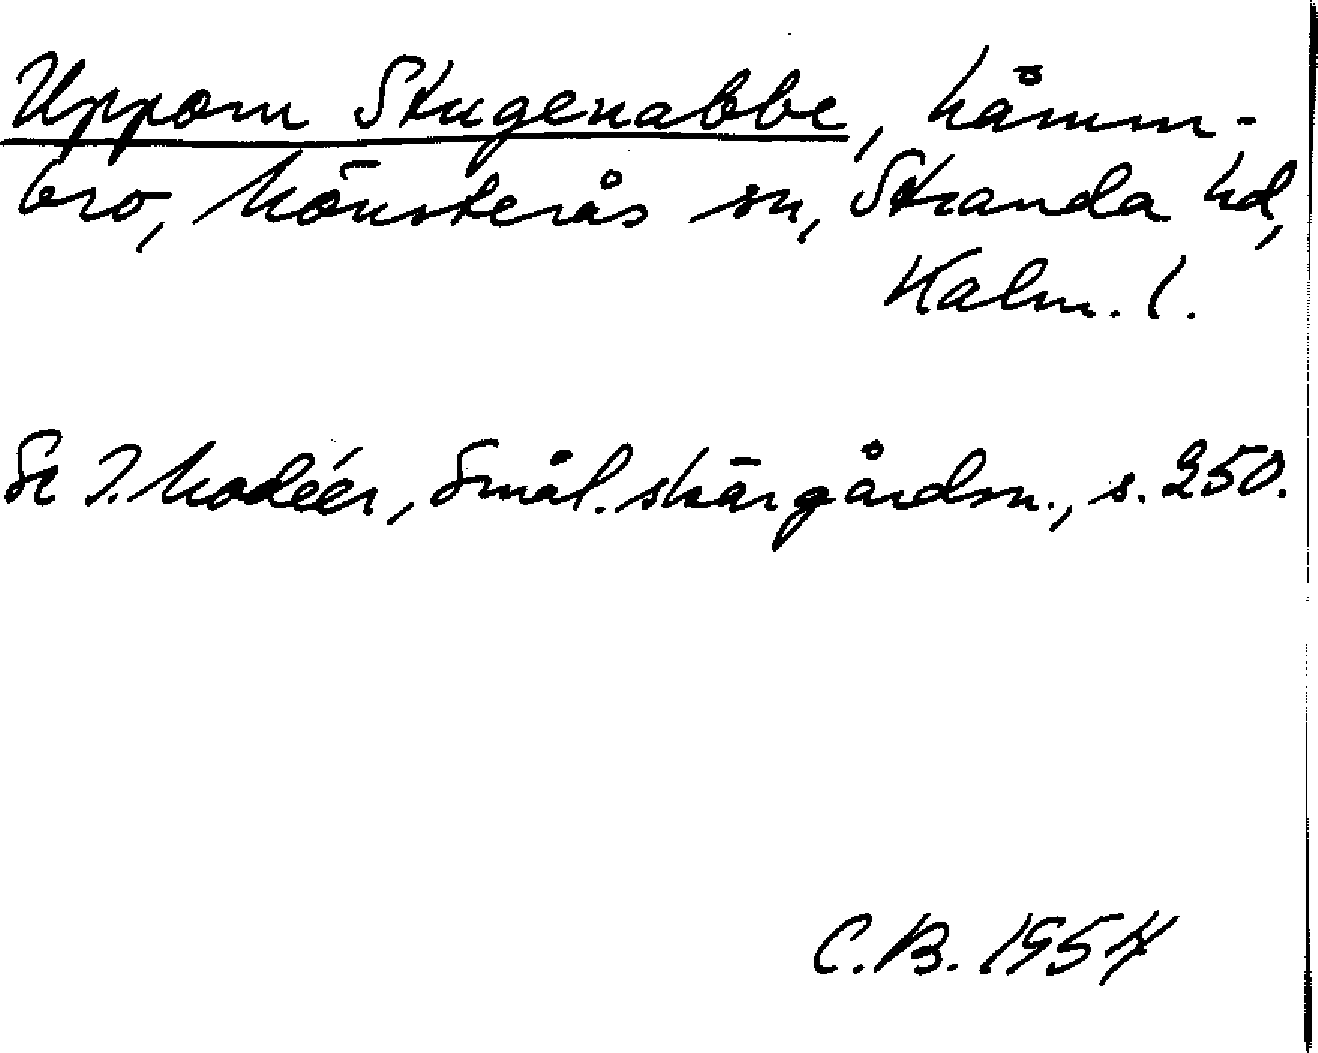 Uppom Stugenabbe, håmm-
bro, Mönsterås sn, Stranda hd,
Kalm. l.
Se I. Modéer, Smål. skärgårdsn., s. 250.
C.B. 1954